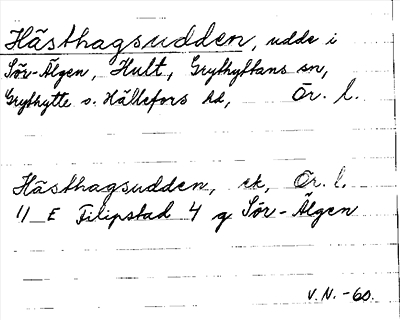 Hästhagsudden, udde i
Sör-Älgen, Hult, Grythyttans sn,
Grythytte o. Hällefors hd, Ör. l.
Hästhagsudden, ek, Ör. l.
11 E Filipstad 4 g Sör-Älgen
V.N. -60.